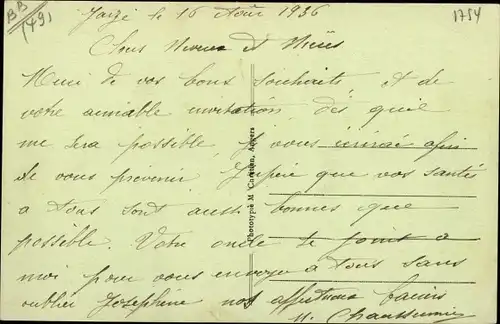 BB
(49)
Jarzé le 16 Août 1936
1754
Chers Neveux et Nièces
Merci de vos bons souhaits et de
votre aimable invitation dès qu'il
me sera possible j'y vous afin
de vous prevenir J'espère que vos santés
à tous sont aussi bonnes que
possible. Votre oncle se joint à
moi pour vous envoyer à tous sans
oublier Josephine nos affectueux baisers
M.
Phototypie M